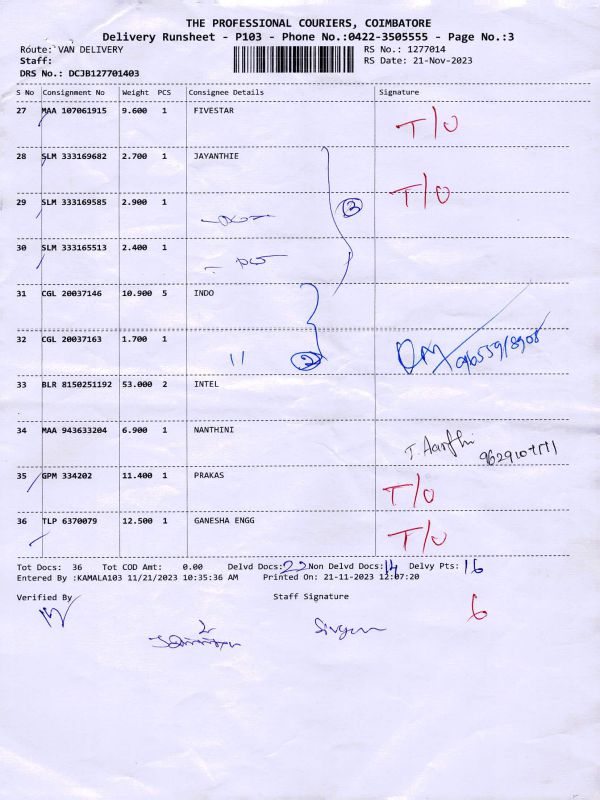 THE PROFESSIONAL COURIERS, COIMBATORE
Delivery Runsheet - P103 - Phone No.:0422-3505555 - Page No.:3
Route: VAN DELIVERY RS No.: 1277014
Staff: RS Date: 21-Nov-2023
DRS No.: DCJB127701403
S No Consignment No Weight PCS Consignee Details Signature
27 MAA 107061915 9.600 1 FIVESTAR T/O
28 SLM 333169682 2.700 1 JAYANTHIE T/O
29 SLM 333169585 2.900 1 3
30 SLM 333165513 2.400 1
31 CGL 20037146 10.900 5 INDO
32 CGL 20037163 1.700 1 11 2
33 BLR 8150251192 53.000 2 INTEL
34 MAA 943633204 6.900 1 NANTHINI J. Aarthi
35 GPM 334202 11.400 1 PRAKAS T/O
36 TLP 6370079 12.500 1 GANESHA ENGG T/O
Tot Docs: 36 Tot COD Amt: 0.00 Delvd Docs: 22 Non Delvd Docs: 14 Delvy Pts: 16
Entered By :KAMALA103 11/21/2023 10:35:36 AM Printed On: 21-11-2023 12:07:20
Verified By Staff Signature 6